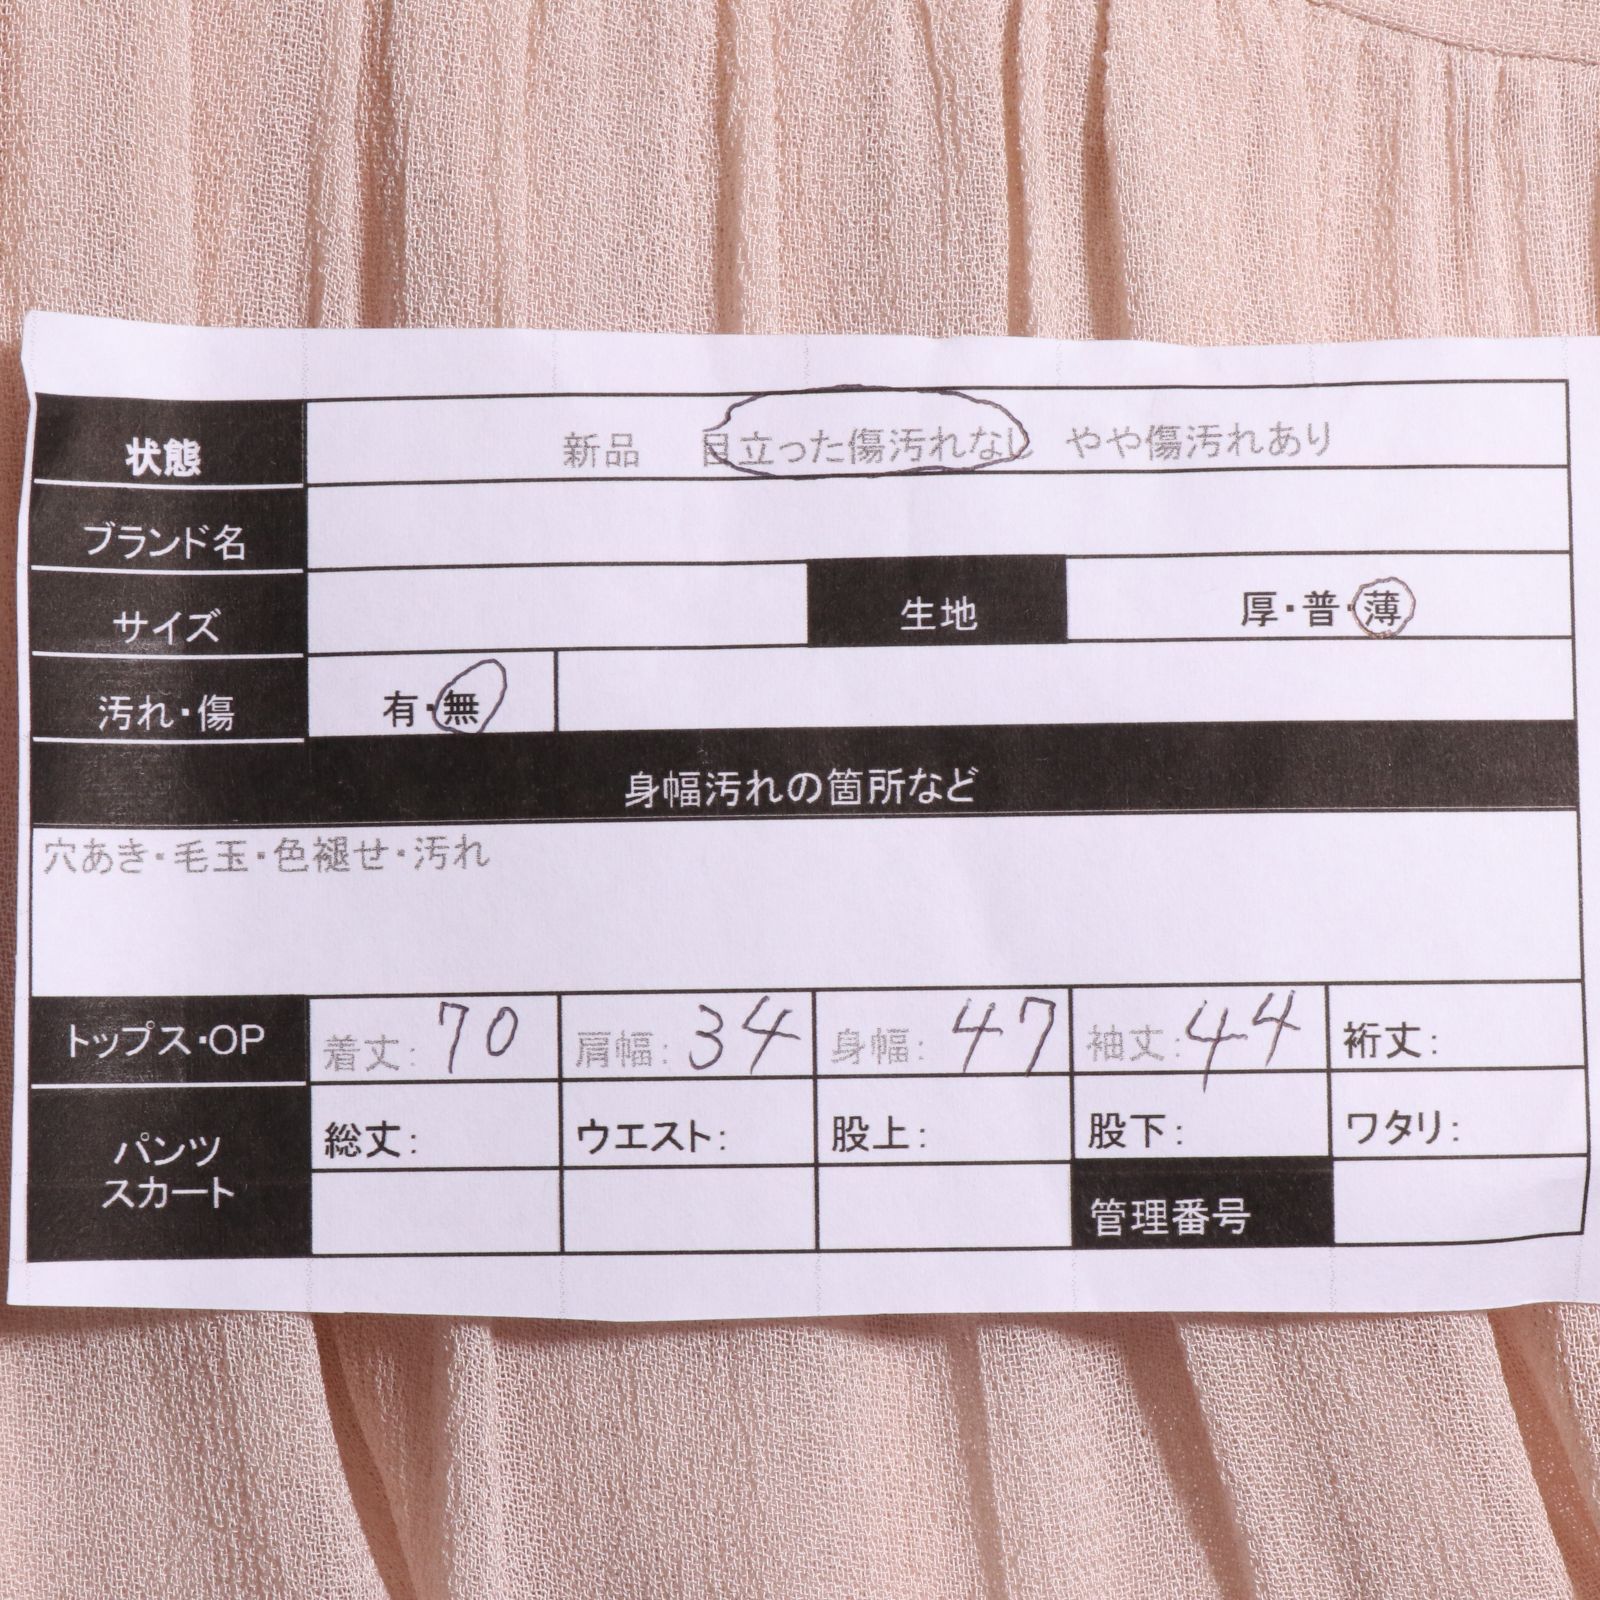 状態 新品 目立った傷汚れなし やや傷汚れあり
ブランド名
サイズ 生地 厚・普・薄
汚れ・傷 有・無
身幅汚れの箇所など
穴あき・毛玉・色褪せ・汚れ
トップス・OP 着丈: 70 肩幅: 34 身幅: 47 袖丈: 44 裄丈:
パンツ 総丈: ウエスト: 股上: 股下: ワタリ:
スカート 管理番号